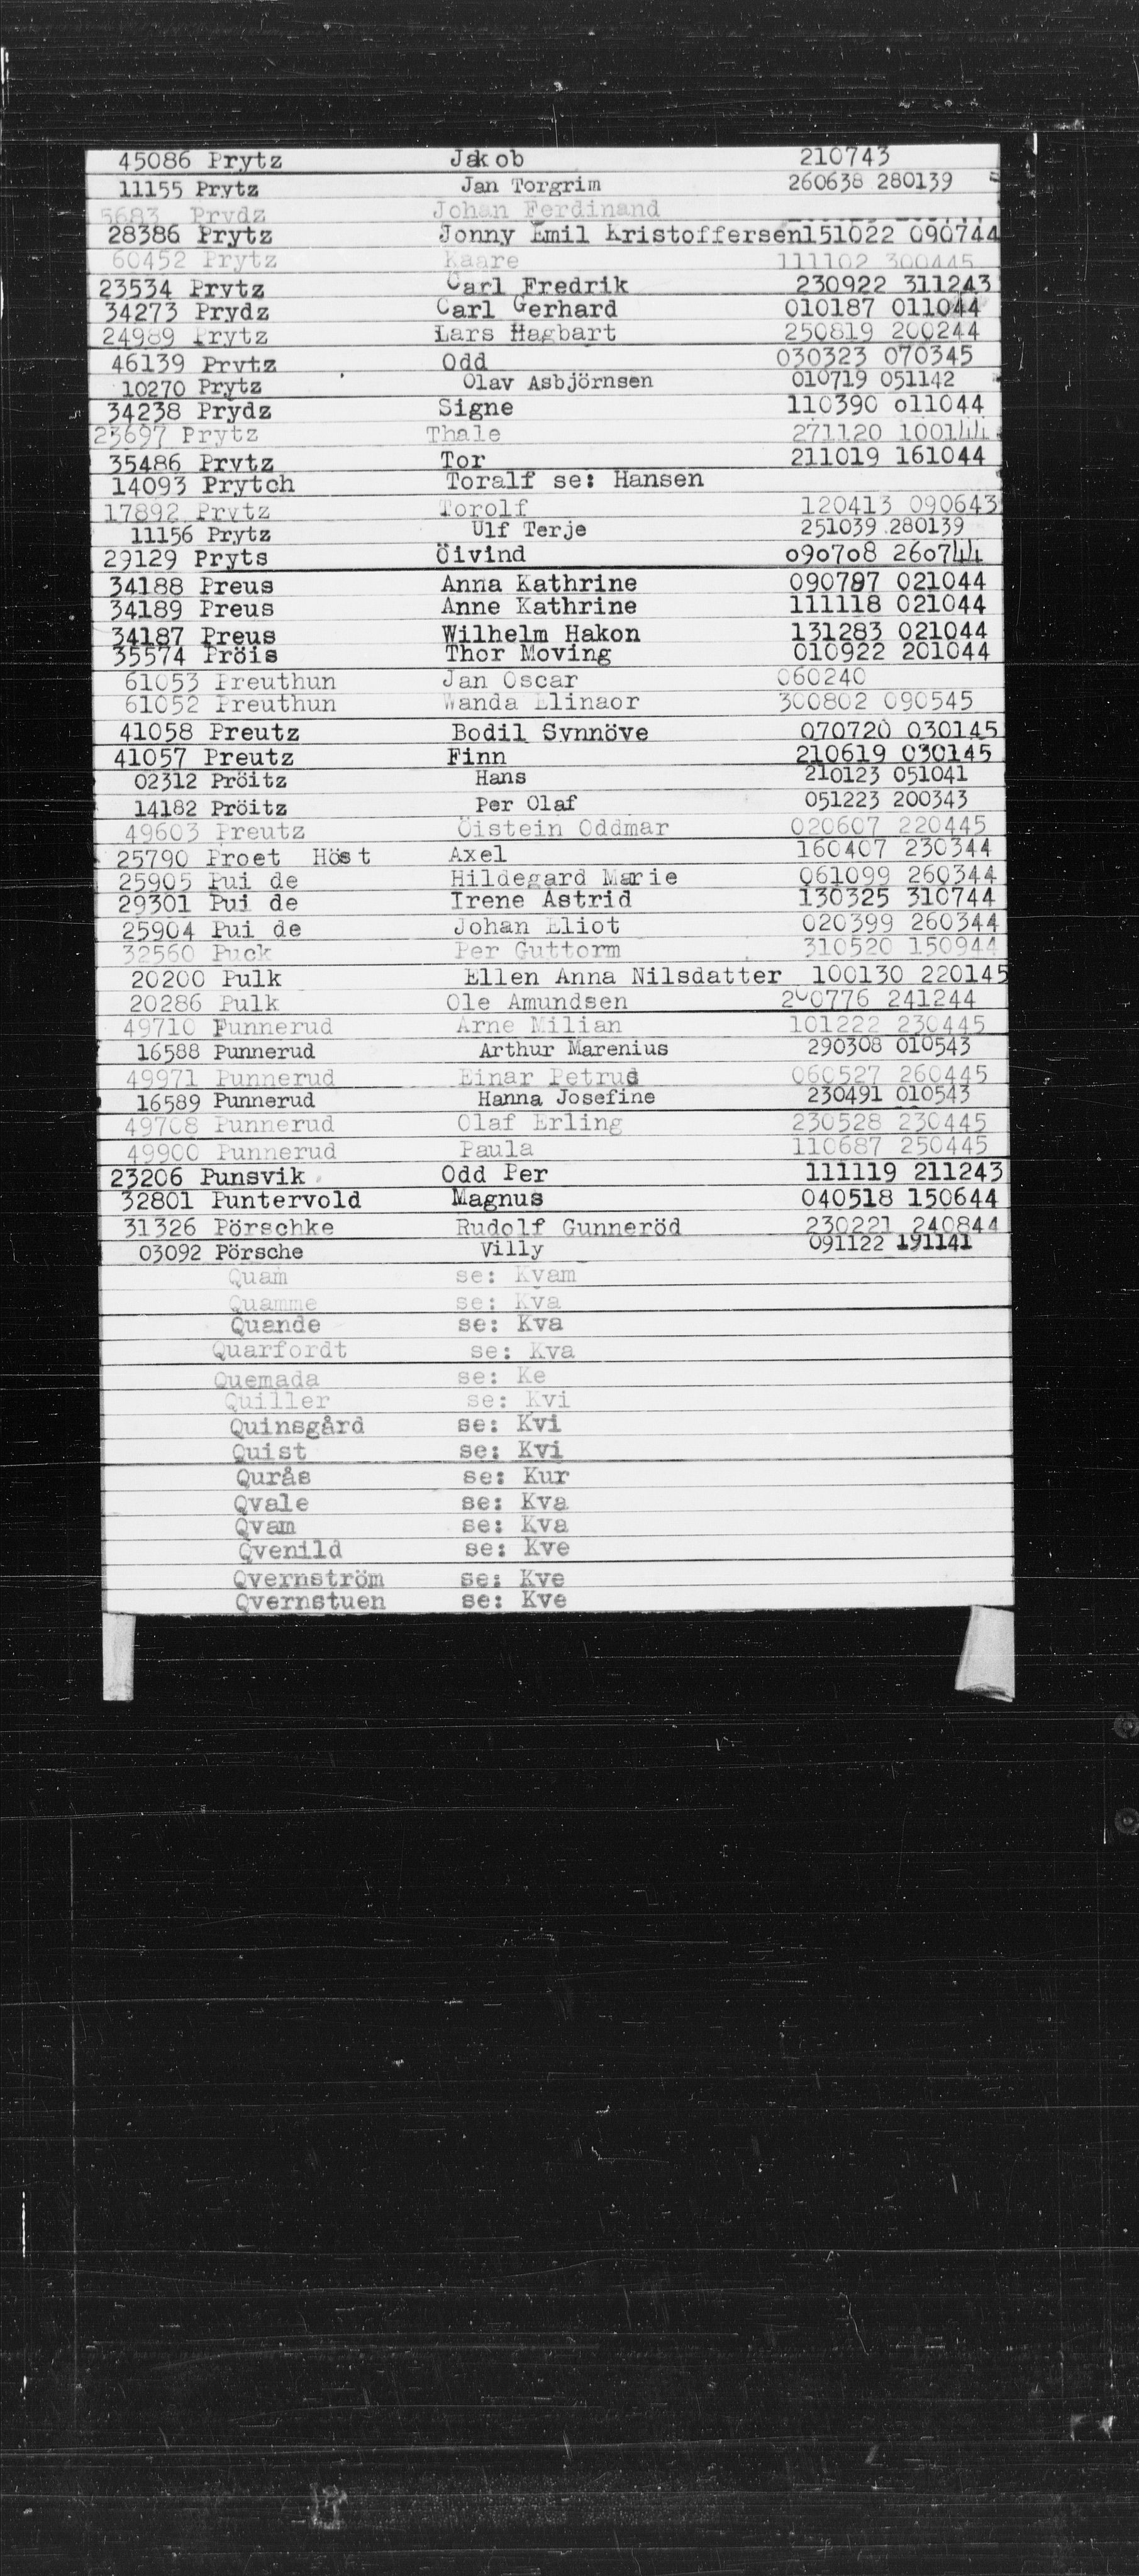 45086 Prytz Jakob 210743
11155 Prytz Jan Torgrim 260638 280139
5683 Prydz Johan Ferdinand
28386 Prytz Jonny Emil Kristoffersen151022 090744
60452 Prytz Kaare 111102 300445
23534 Prytz Carl Fredrik 230922 311243
34273 Prydz Carl Gerhard 010187 011044
24989 Prytz Lars Hagbart 250819 200244
46139 Prytz Odd 030323 070345
10270 Prytz Olav Asbjörnsen 010719 051142
34238 Prydz Signe 110390 011044
23697 Prytz Thale 271120 100144
35486 Prytz Tor 211019 161044
14093 Prytch Toralf se: Hansen
17892 Prytz Torolf 120413 090643
11156 Prytz Ulf Terje 251039 280139
29129 Pryts Öivind 090708 260744
34188 Preus Anna Kathrine 090787 021044
34189 Preus Anne Kathrine 111118 021044
34187 Preus Wilhelm Hakon 131283 021044
35574 Pröis Thor Moving 010922 201044
61053 Preuthun Jan Oscar 060240
61052 Preuthun Wanda Elinaor 300802 090545
41058 Preutz Bodil Synnöve 070720 030145
41057 Preutz Finn 210619 030145
02312 Pröitz Hans 210123 051041
14182 Pröitz Per Olaf 051223 200343
49603 Preutz Öistein Oddmar 020607 220445
25790 Proet Höst Axel 160407 230344
25905 Pui de Hildegard Marie 061099 260344
29301 Pui de Irene Astrid 130325 310744
25904 Pui de Johan Eliot 020399 260344
32560 Puck Per Guttorm 310520 150944
20200 Pulk Ellen Anna Nilsdatter 100130 220145
20286 Pulk Ole Amundsen 200776 241244
49710 Punnerud Arne Milian 101222 230445
16588 Punnerud Arthur Marenius 290308 010543
49971 Punnerud Einar Petrus 060527 260445
16589 Punnerud Hanna Josefine 230491 010543
49708 Punnerud Olaf Erling 230528 230445
49900 Punnerud Paula 110687 250445
23206 Punsvik Odd Per 111119 211243
32801 Puntervold Magnus 040518 150644
31326 Pörschke Rudolf Gunneröd 230221 240844
03092 Pörsche Villy 091122 191141
Quam se: Kvam
Quamme se: Kva
Quande se: Kva
Quarfordt se: Kva
Quemada se: Ke
Quiller se: Kvi
Quinsgård se: Kvi
Quist se: Kvi
Qurås se: Kur
Qvale se: Kva
Qvam se: Kva
Qvenild se: Kve
Qvernström se: Kve
Qvernstuen se: Kve